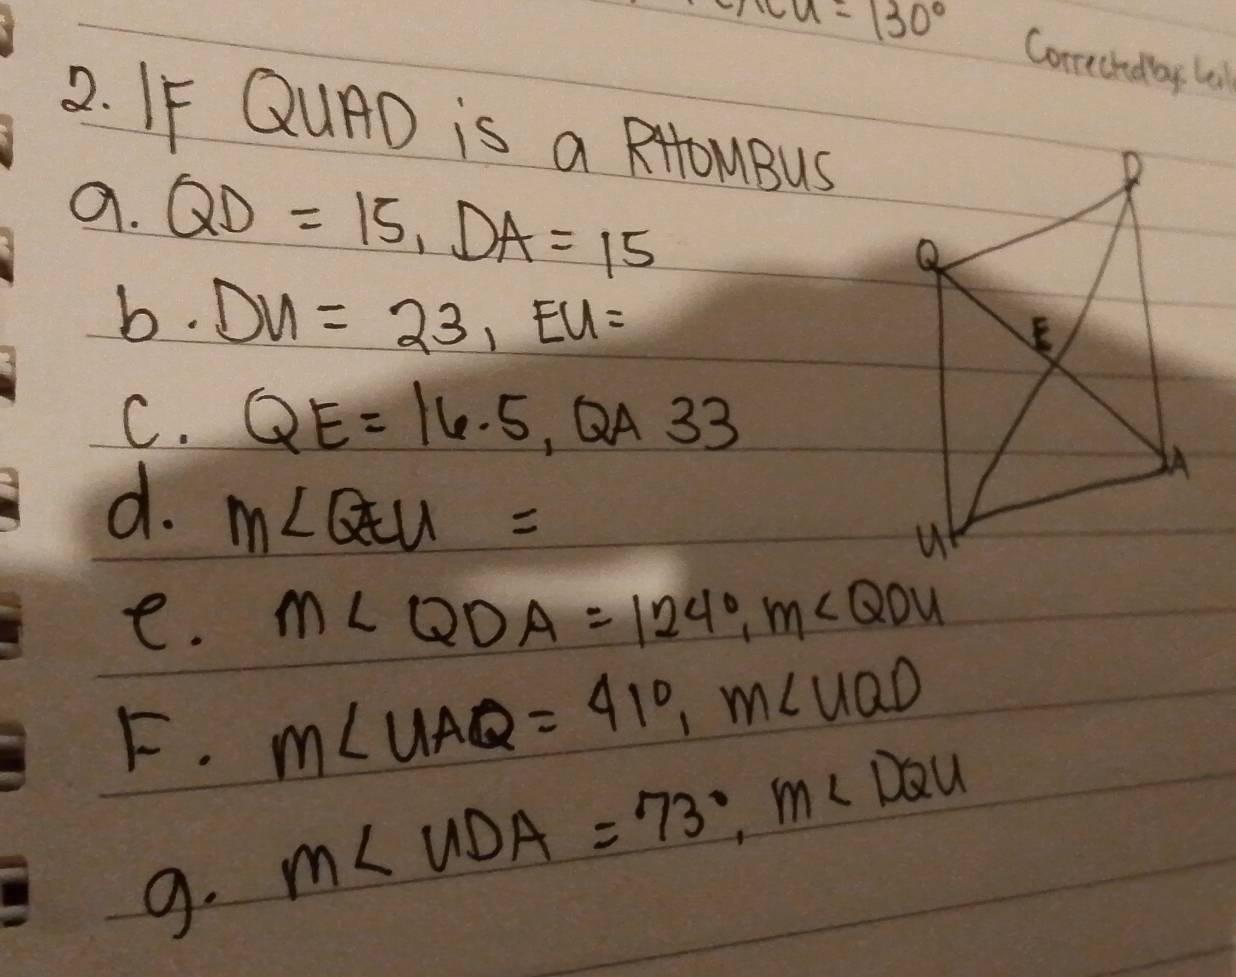 = 130°
Corrected by:
2. IF QUAD is a RHOMBUS
a. QD = 15, DA = 15
b. DU = 23, EU =
c. QE = 16.5, QA 33
d. m∠QEU =
e. m∠ QDA = 124°, m∠QDU
F. m∠UAQ = 41°, m∠UQD
g. m∠ UDA = 73°, m∠ DQU
D
Q
E
A
U